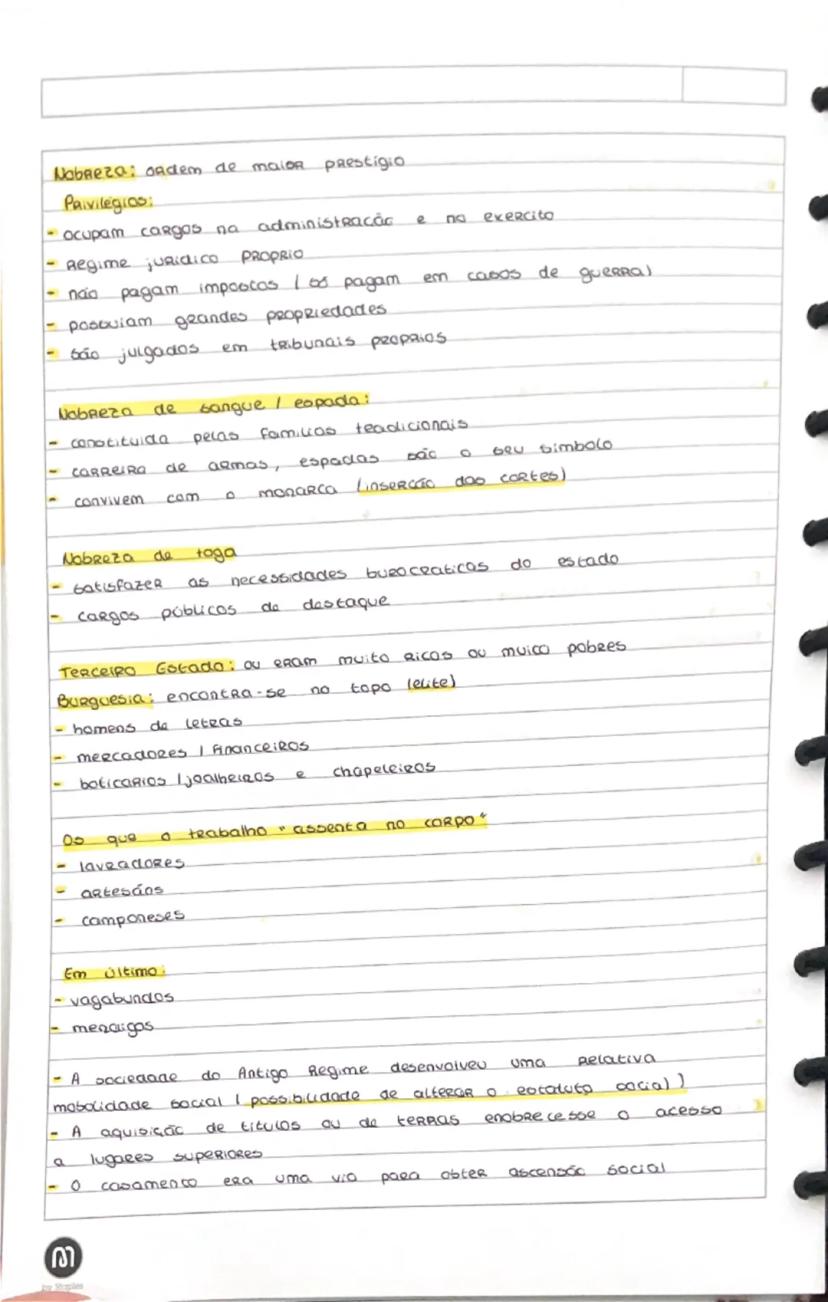 Nobreza: ordem de maior prestígio
Privilégios:
- ocupam cargos na administração e no exercito
- Regime juridico proprio
- não pagam impostos (só pagam em casos de guerra)
- possuiam grandes propriedades
- são julgados em tribunais proprios
Nobreza de sangue / espada:
- constituida pelas familias tradicionais
- carreira de armas, espadas são o seu simbolo
- convivem com o monarca (inserção das cortes)
Nobreza de toga
- satisfazer as necessidades burocraticas do estado
- cargos públicos de destaque
Terceiro Estado: ou eram muito ricos ou muito pobres
Burguesia: encontra-se no topo (elite)
- homens de letras
- mercadores / financeiros
- boticarios / joalheiros e chapeleiros
Os que o trabalho "assenta no corpo"
- lavradores
- artesãos
- camponeses
Em último:
- vagabundos
- mendigos
- A sociedade do Antigo Regime desenvolveu uma relativa
mobolidade social (possibilidade de alterar o estatuto social)
- A aquisição de titulos ou de terras enobrecesse o acesso
a lugares superiores
- O casamento era uma via para obter ascensão social
by Staples